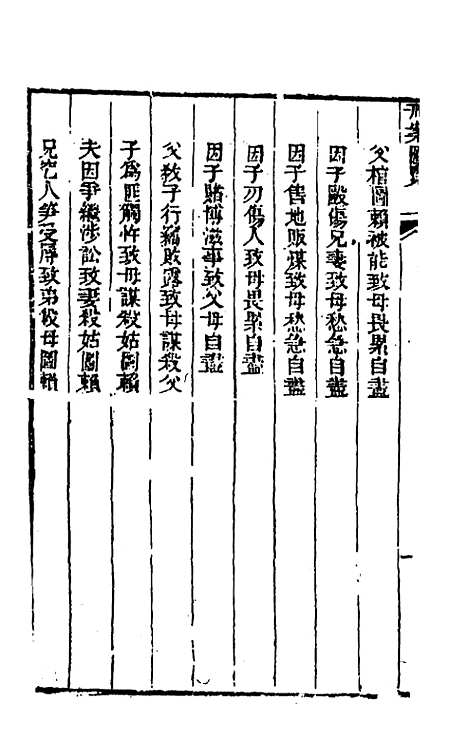 父棺圖賴被能致母畏累自盡
因子毆傷兄妻致母愁急自盡
因子售地販煤致母愁急自盡
因子刃傷人致母畏累自盡
因子賭博滋事致父母自盡
父教子行竊敗露致母謀殺父
子爲匪觸忤致母謀殺姑圖賴
夫因爭繼涉訟致妻殺姑圖賴
兄挖人笋受辱致弟殺母圖賴